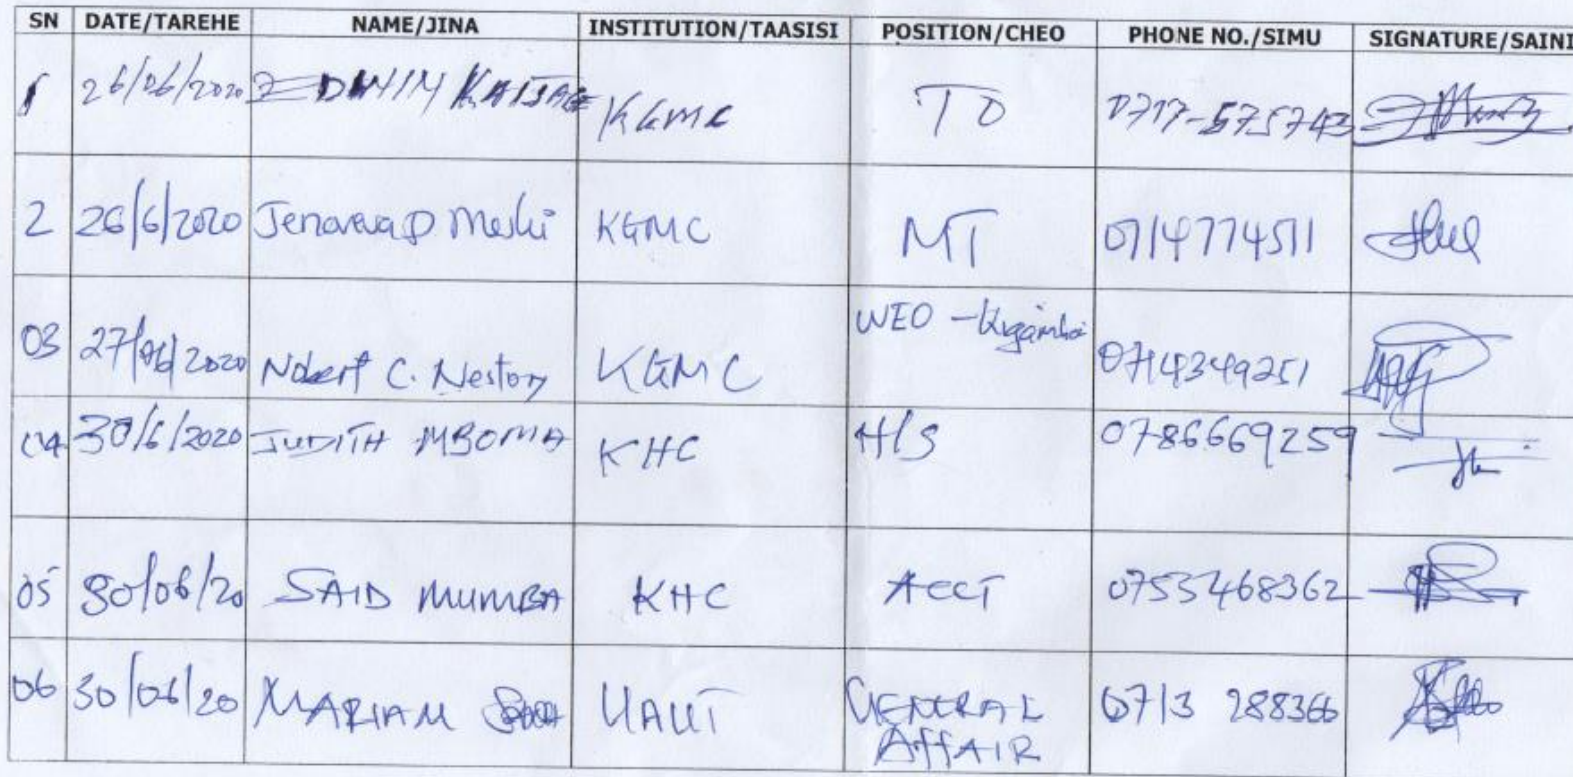 SN DATE/TAREHE NAME/JINA INSTITUTION/TAASISI POSITION/CHEO PHONE NO./SIMU SIGNATURE/SAINI
1 26/06/2020 EDWIN KATSAGE KGMC TO 0717-575743
2 26/6/2020 D KGMC MT 0714774511
03 27/06/2020 Nobert C. Nestory KGMC WEO - Kigamboni 0714349251
04 30/6/2020 JUDITH MBOMA KHC H/S 0786669259
05 30/06/20 SAID MUMBA KHC ACCT 0753468362
06 30/06/20 MARIAM UAUT GENERAL
AFFAIR 0713 288366